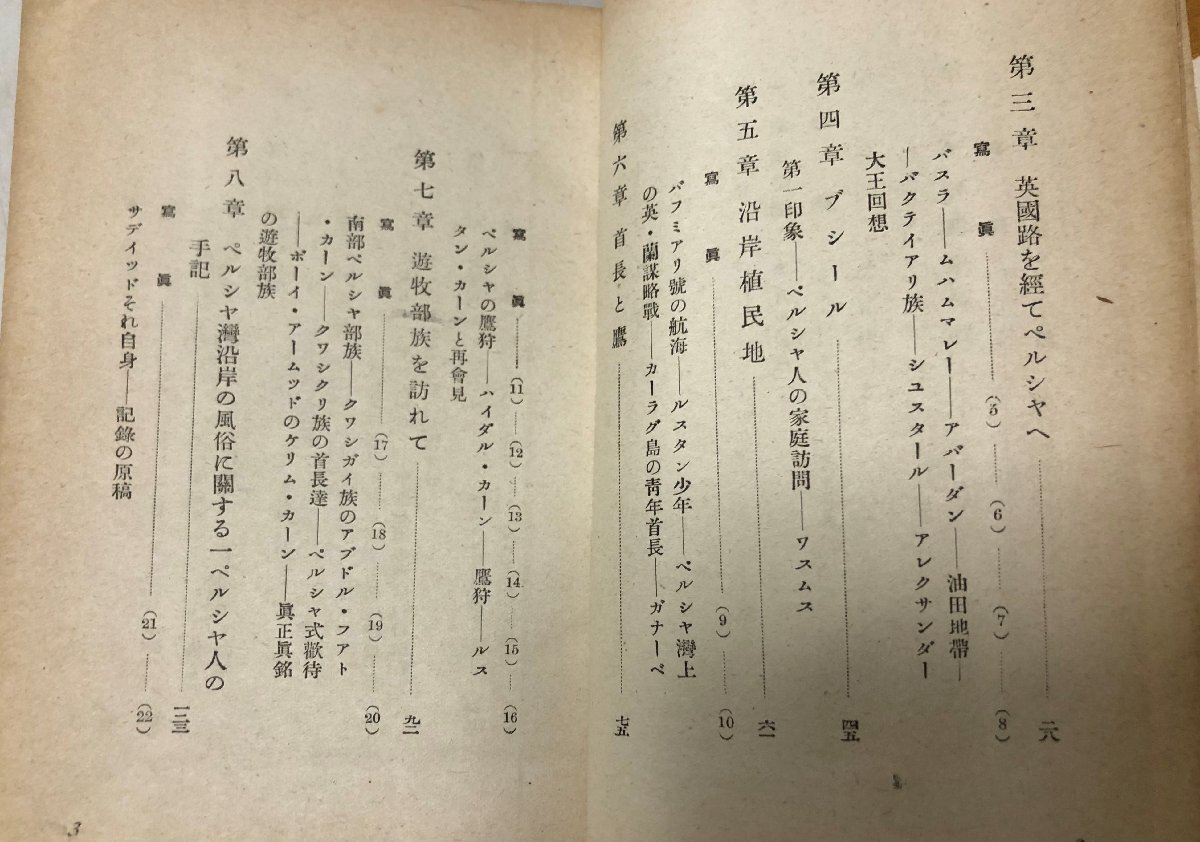 第三章 英國路を經てペルシヤへ……二八
寫眞……(5)……(6)……(7)……(8)
バスラ――ムハムマレー――アバーダン――油田地帶―
―バクテイアリ族――シユスタール――アレクサンダー
大王回想
第四章 ブシール……四五
第一印象――ペルシヤ人の家庭訪問――ワスムス
第五章 沿岸植民地……六一
寫眞……(9)……(10)
バフミアリ號の航海――ルスタン少年――ペルシヤ灣上
の英・蘭謀略戰――カーラグ島の靑年首長――ガナーベ
第六章 首長と鷹……七五
寫眞……(11)……(12)……(13)……(14)……(15)……(16)
ペルシヤの鷹狩――ハイダル・カーン――鷹狩――ルス
タン・カーンと再會見
第七章 遊牧部族を訪れて……九二
寫眞……(17)……(18)……(19)……(20)
南部ペルシヤ部族――クワシガイ族のアブドル・フアト
・カーン――クワシクリ族の首長達――ペルシヤ式歡待
――ボーイ・アームツドのケリム・カーン――眞正眞銘
の遊牧部族
第八章 ペルシヤ灣沿岸の風俗に關する一ペルシヤ人の
手記……一三三
寫眞……(21)……(22)
サデイツドそれ自身――記錄の原稿
3